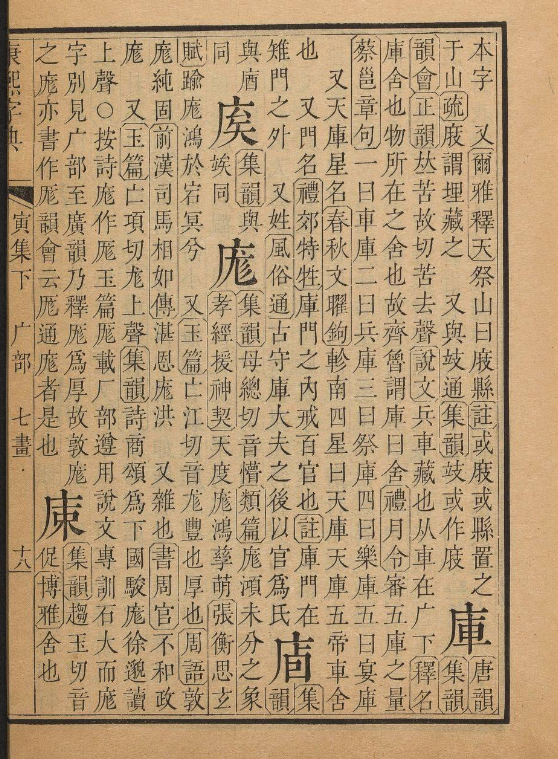 本字　又爾雅釋天祭山曰庪縣註或庪或縣置之
于山疏庪謂埋藏之　又與攱通集韻攱或作庪
庫
唐韻集韻
韻會正韻𠀤苦故切苦去聲說文兵車藏也从車在广下釋名
庫舍也物所在之舍也故齊魯謂庫曰舍禮月令審五庫之量
蔡邕章句一曰車庫二曰兵庫三曰祭庫四曰樂庫五曰宴庫
又天庫星名春秋文曜鉤軫南四星曰天庫天庫五帝車舍
也　又門名禮郊特牲庫門之內戒百官也註庫門在
雉門之外　又姓風俗通古守庫大夫之後以官爲氏
集韻
與庮同
集韻與竢同
庬
集韻母總切音懵類篇庬鴻未分之象
孝經援神契天度庬鴻孳萌張衡思玄
賦踰庬鴻於宕冥兮　又玉篇亡江切音尨豐也厚也周語敦
庬純固前漢司馬相如傳湛恩庬洪　又雜也書周官不和政
庬　又玉篇亡項切尨上聲集韻詩商頌爲下國駿庬徐邈讀
上聲○按詩庬作厖玉篇厖載厂部遵用說文專訓石大而庬
字別見广部至廣韻乃釋厖爲厚故敦庬
之庬亦書作厖韻會云厖通庬者是也
集韻趨玉切音
促博雅舍也
康熙字典　寅集下　广部　七畫　十八